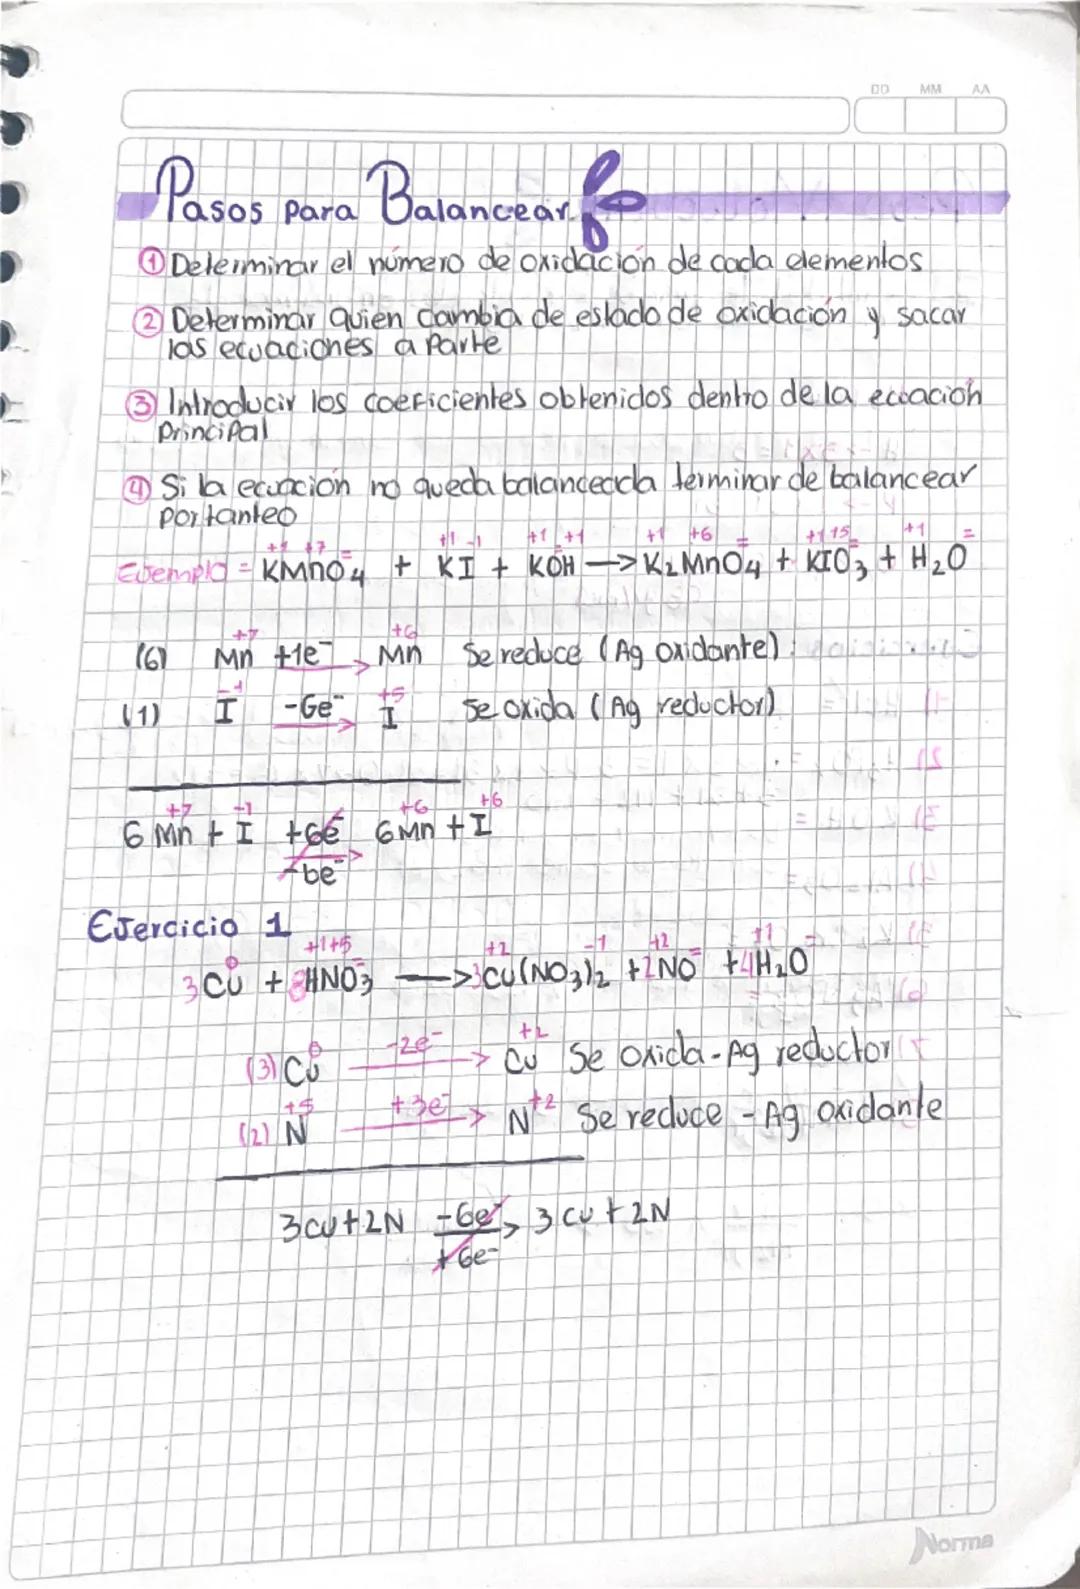 DD MM AA
Pasos para Balancear
① Determinar el número de oxidación de cada elementos
② Determinar quien cambia de estado de oxidación y sacar
las ecuaciones a parte
③ Introducir los coeficientes obtenidos dentro de la ecuación
principal
④ Si la ecuación no queda balanceada terminar de balancear
por tanteo
+1 +7 = +1 -1 +1 = +1 +1 +6 = +1 +5 = +1 =
Ejemplo = KMnO4 + KI + KOH → K2MnO4 + KIO3 + H2O
+7 +6
(6) Mn +1e⁻ → Mn Se reduce (Ag oxidante)
-1 +5
(1) I -6e⁻ → I Se oxida (Ag reductor)
+7 -1 +6 +6
6 Mn + I +6e⁻ 6Mn + I
-6e⁻ →
Ejercicio 1
0 +1 +5 = +2 -1 +2 = +1 =
3Cu + 8HNO3 → 3Cu(NO3)2 + 2NO + 4H2O
0 +2
(3) Cu -2e⁻ → Cu Se oxida - Ag reductor
+5
(2) N +3e⁻ → N+2 Se reduce - Ag oxidante
3Cu + 2N -6e⁻ → 3Cu + 2N
+6e⁻
Norma